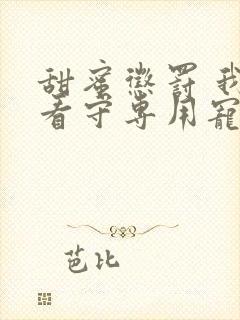 甜蜜懲罰 我
看守專用寵
芭比